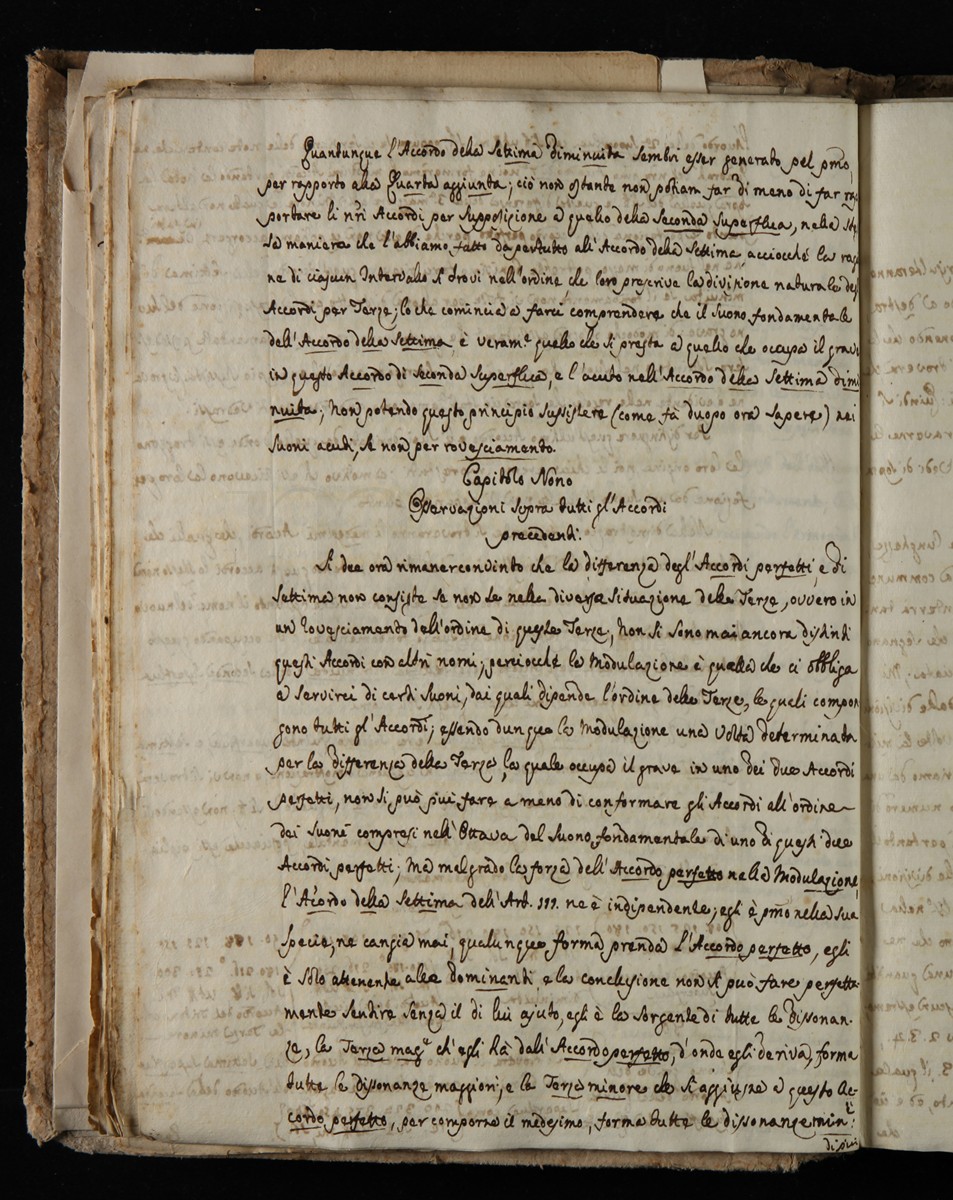 Quantunque l'Accordo della Settima diminuita sembri esser generato pel pmo
per rapporto alla Quarta aggiunta; ciò non ostante non potiam far di meno di far rap
portare li nri Accordi per supposizione a quello della Seconda Superflua, nella ste
sa maniera che l'abbiamo fatto da pertutto all'Accordo della Settima acciocché la rag
ne di ciascun Intervallo si trovi nell'ordine che loro prescrive la divisione naturale deg
Accordi per Terze; lo che comincia a farci comprendere che il Suono fondamentale
dell'Accordo della Settima è veramte quello che si presta a quello che occupa il grave
in questo Accordo di Seconda Superflua, e l'acuto nell'Accordo della Settima dimi
nuita; non potendo questo principio sussistere (come fà duopo ora sapere) nei
Suoni acuti, se non per rovesciamento.
Capitolo Nono
Osservazioni sopra tutti gl'Accordi
precedenti.
Si dee ora rimaner convinto che la differenza degl'Accordi perfetti, e di
Settima non consiste se non se nella diversa situazione delle Terze, ovvero in
un rovesciamento dell'ordine di queste Terze, non si sono mai ancora distinti
questi Accordi con altri nomi; perciocché la Modulazione è quella che ci obbliga
a servirci di certi suoni, dai quali dipende l'ordine delle Terze, le quali compon
gono tutti gl'Accordi; essendo dunque la Modulazione una volta determinata
per la differenza della Terza, la quale occupa il grave in uno dei due Accordi
perfetti, non si può più fare a meno di conformare gli Accordi all'ordine
dei Suoni compresi nell'Ottava del Suono fondamentale di uno di questi due
Accordi perfetti; Ma malgrado la forza dell'Accordo perfetto nella Modulazione
l'Accordo della Settima dell'Art. III. ne è indipendente; egli è pmo nella sua
specie, ne cangia mai, qualunque forma prenda l'Accordo perfetto, egli
è solo attenente alle dominanti, e la conclusione non si può fare perfetta-
mente sentire senza il di lui ajuto, egli è la sorgente di tutte le dissonan-
ze, la Terza magre ch'egli hà dall'Accordo perfetto, d'onde egli deriva, forma
tutte le dissonanze maggiori; e la Terza minore che si aggiugne a questo Ac-
cordo perfetto, per comporna il medesimo, forma tutte le dissonanze min:i
di più